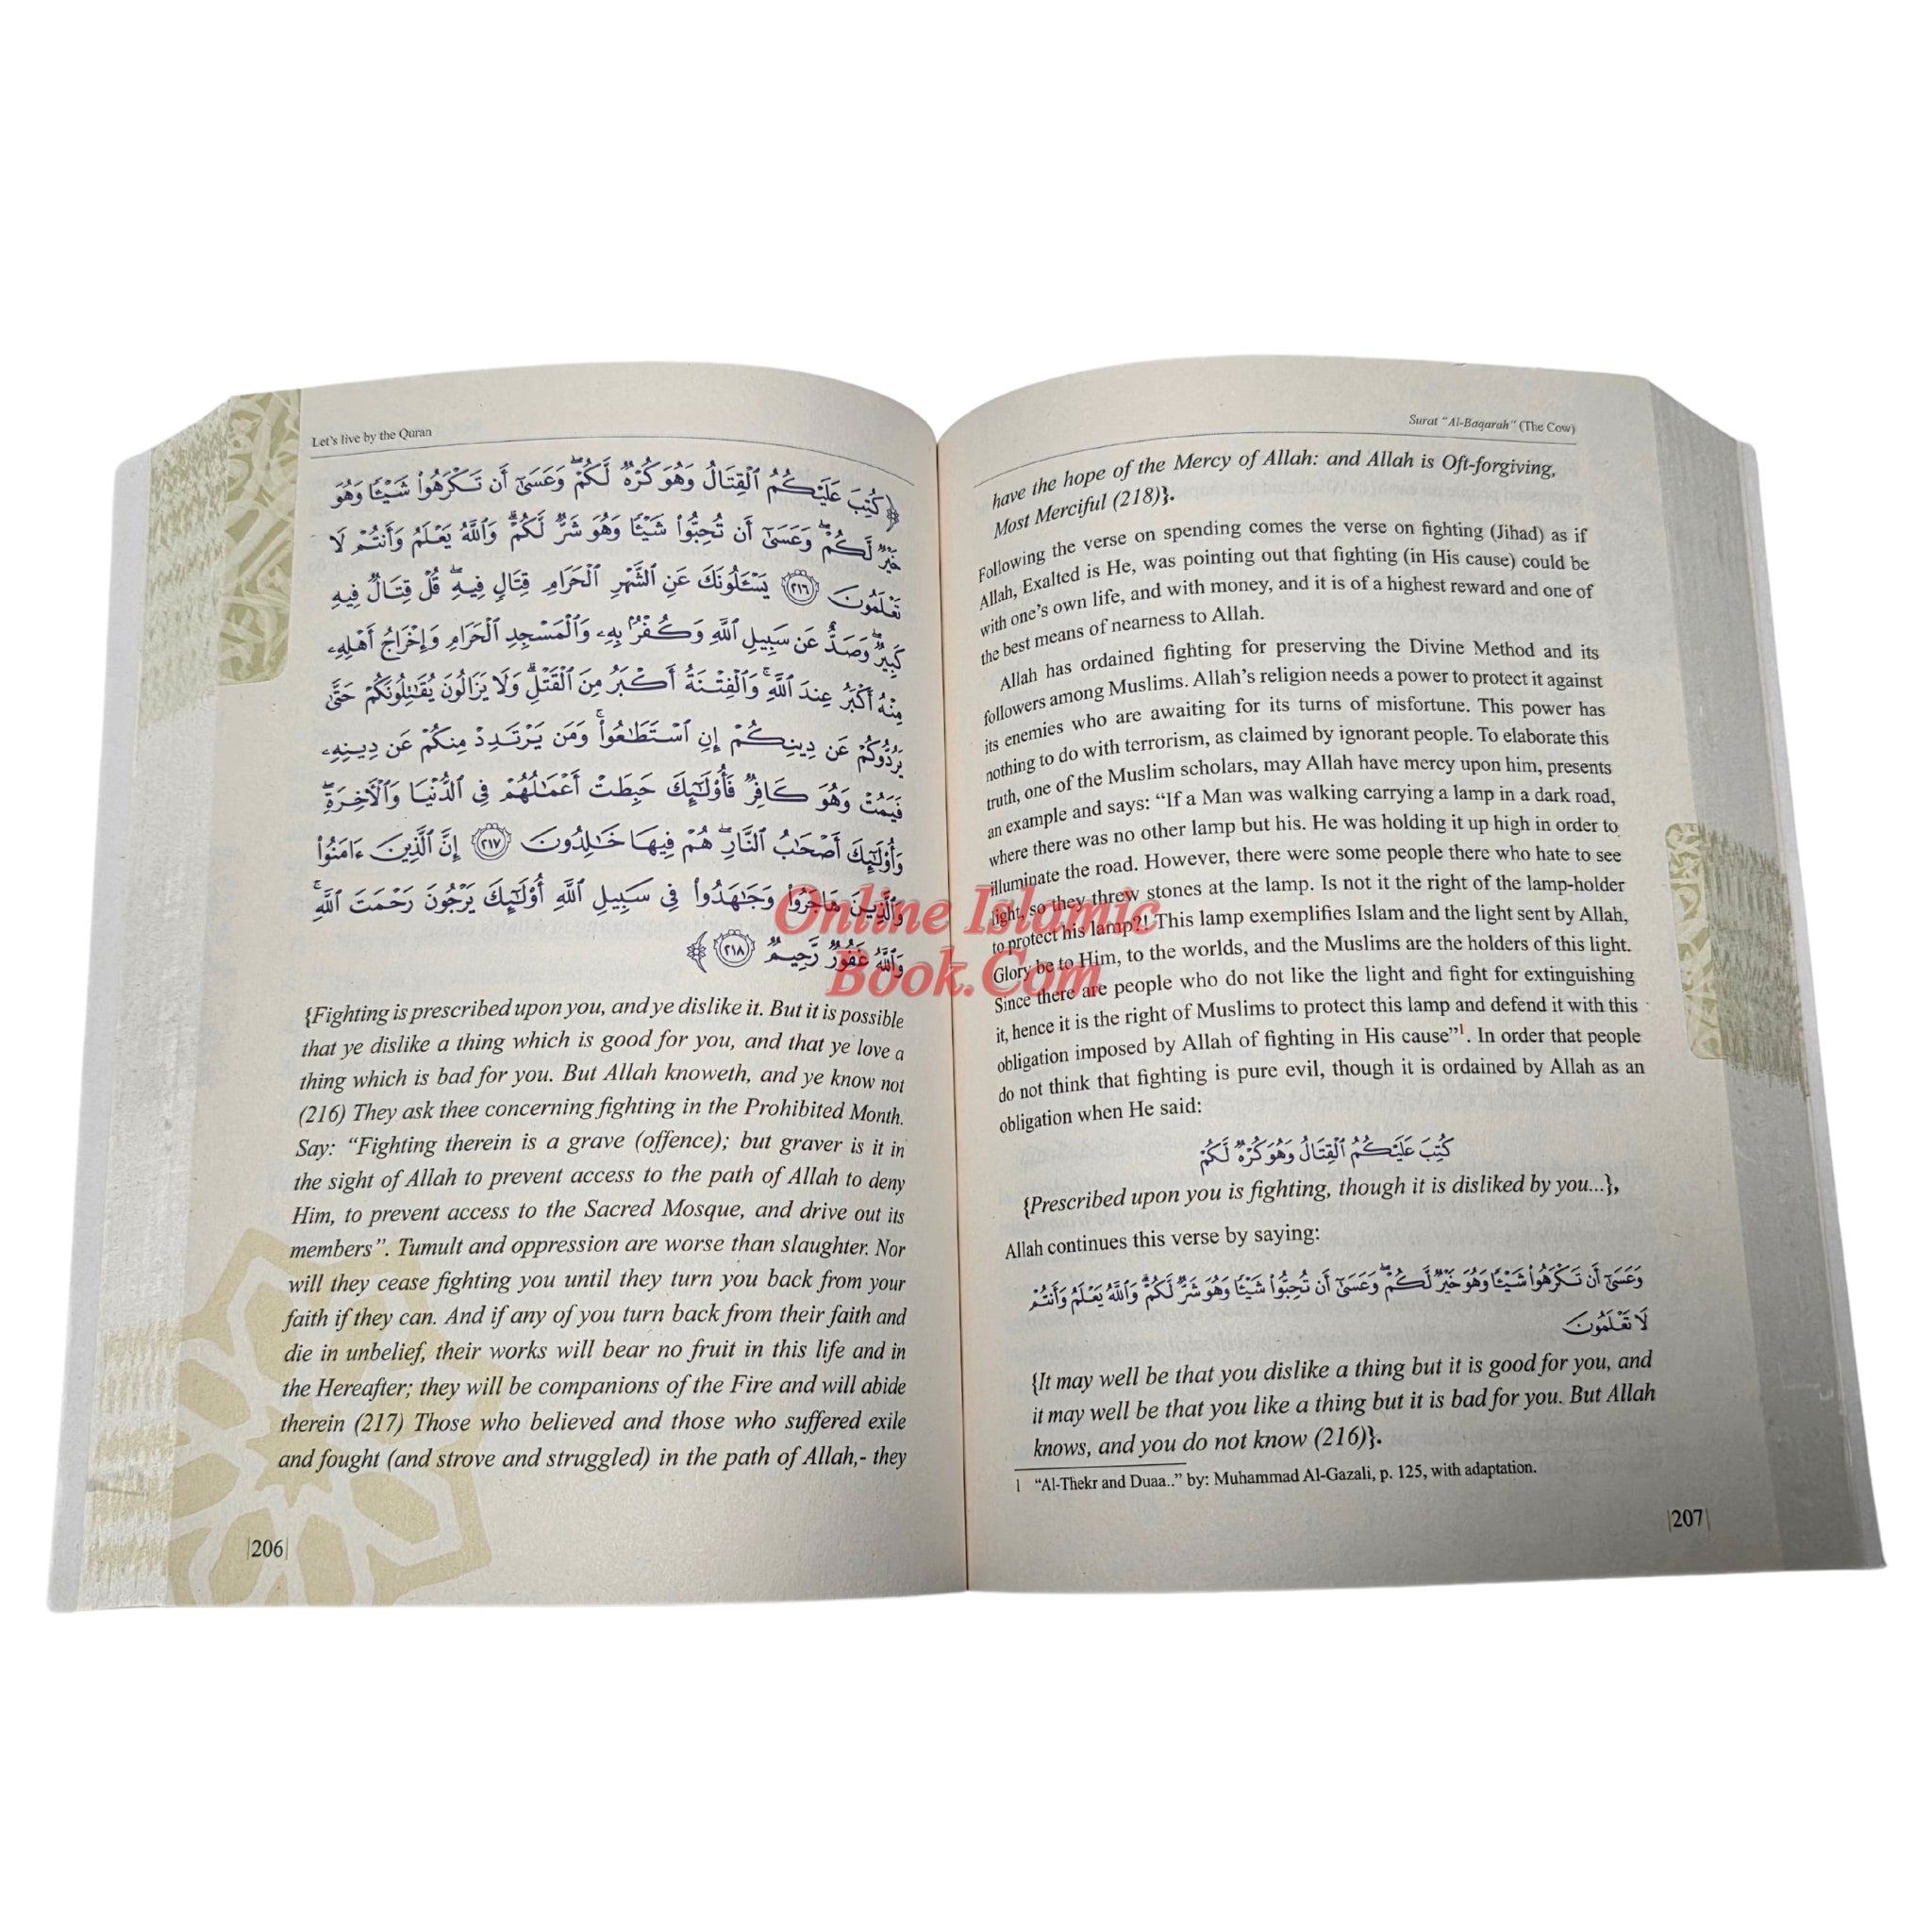 Let's live by the Quran
﴿كُتِبَ عَلَيْكُمُ ٱلْقِتَالُ وَهُوَ كُرْهٌ لَّكُمْ ۖ وَعَسَىٰٓ أَن تَكْرَهُوا۟ شَيْـًٔا وَهُوَ
خَيْرٌ لَّكُمْ ۖ وَعَسَىٰٓ أَن تُحِبُّوا۟ شَيْـًٔا وَهُوَ شَرٌّ لَّكُمْ ۗ وَٱللَّهُ يَعْلَمُ وَأَنتُمْ لَا
تَعْلَمُونَ ٢١٦ يَسْـَٔلُونَكَ عَنِ ٱلشَّهْرِ ٱلْحَرَامِ قِتَالٍ فِيهِ ۖ قُلْ قِتَالٌ فِيهِ
كَبِيرٌ ۖ وَصَدٌّ عَن سَبِيلِ ٱللَّهِ وَكُفْرٌۢ بِهِۦ وَٱلْمَسْجِدِ ٱلْحَرَامِ وَإِخْرَاجُ أَهْلِهِۦ
مِنْهُ أَكْبَرُ عِندَ ٱللَّهِ ۚ وَٱلْفِتْنَةُ أَكْبَرُ مِنَ ٱلْقَتْلِ ۗ وَلَا يَزَالُونَ يُقَـٰتِلُونَكُمْ حَتَّىٰ
يَرُدُّوكُمْ عَن دِينِكُمْ إِنِ ٱسْتَطَـٰعُوا۟ ۚ وَمَن يَرْتَدِدْ مِنكُمْ عَن دِينِهِۦ
فَيَمُتْ وَهُوَ كَافِرٌ فَأُو۟لَـٰٓئِكَ حَبِطَتْ أَعْمَـٰلُهُمْ فِى ٱلدُّنْيَا وَٱلْـَٔاخِرَةِ ۖ
وَأُو۟لَـٰٓئِكَ أَصْحَـٰبُ ٱلنَّارِ ۖ هُمْ فِيهَا خَـٰلِدُونَ ٢١٧ إِنَّ ٱلَّذِينَ ءَامَنُوا۟
وَٱلَّذِينَ هَاجَرُوا۟ وَجَـٰهَدُوا۟ فِى سَبِيلِ ٱللَّهِ أُو۟لَـٰٓئِكَ يَرْجُونَ رَحْمَتَ ٱللَّهِ ۚ
وَٱللَّهُ غَفُورٌ رَّحِيمٌ ٢١٨﴾
{Fighting is prescribed upon you, and ye dislike it. But it is possible
that ye dislike a thing which is good for you, and that ye love a
thing which is bad for you. But Allah knoweth, and ye know not
(216) They ask thee concerning fighting in the Prohibited Month.
Say: “Fighting therein is a grave (offence); but graver is it in
the sight of Allah to prevent access to the path of Allah to deny
Him, to prevent access to the Sacred Mosque, and drive out its
members”. Tumult and oppression are worse than slaughter. Nor
will they cease fighting you until they turn you back from your
faith if they can. And if any of you turn back from their faith and
die in unbelief, their works will bear no fruit in this life and in
the Hereafter; they will be companions of the Fire and will abide
therein (217) Those who believed and those who suffered exile
and fought (and strove and struggled) in the path of Allah,- they
|206|
Surat “Al-Baqarah” (The Cow)
have the hope of the Mercy of Allah: and Allah is Oft-forgiving,
Most Merciful (218)}.
Following the verse on spending comes the verse on fighting (Jihad) as if
Allah, Exalted is He, was pointing out that fighting (in His cause) could be
with one's own life, and with money, and it is of a highest reward and one of
the best means of nearness to Allah.
Allah has ordained fighting for preserving the Divine Method and its
followers among Muslims. Allah's religion needs a power to protect it against
its enemies who are awaiting for its turns of misfortune. This power has
nothing to do with terrorism, as claimed by ignorant people. To elaborate this
truth, one of the Muslim scholars, may Allah have mercy upon him, presents
an example and says: “If a Man was walking carrying a lamp in a dark road,
where there was no other lamp but his. He was holding it up high in order to
illuminate the road. However, there were some people there who hate to see
light, so they threw stones at the lamp. Is not it the right of the lamp-holder
to protect his lamp?! This lamp exemplifies Islam and the light sent by Allah,
Glory be to Him, to the worlds, and the Muslims are the holders of this light.
Since there are people who do not like the light and fight for extinguishing
it, hence it is the right of Muslims to protect this lamp and defend it with this
obligation imposed by Allah of fighting in His cause”1. In order that people
do not think that fighting is pure evil, though it is ordained by Allah as an
obligation when He said:
كُتِبَ عَلَيْكُمُ ٱلْقِتَالُ وَهُوَ كُرْهٌ لَّكُمْ
{Prescribed upon you is fighting, though it is disliked by you...},
Allah continues this verse by saying:
وَعَسَىٰٓ أَن تَكْرَهُوا۟ شَيْـًٔا وَهُوَ خَيْرٌ لَّكُمْ ۖ وَعَسَىٰٓ أَن تُحِبُّوا۟ شَيْـًٔا وَهُوَ شَرٌّ لَّكُمْ ۗ وَٱللَّهُ يَعْلَمُ وَأَنتُمْ
لَا تَعْلَمُونَ
{It may well be that you dislike a thing but it is good for you, and
it may well be that you like a thing but it is bad for you. But Allah
knows, and you do not know (216)}.
1 “Al-Thekr and Duaa..” by: Muhammad Al-Gazali, p. 125, with adaptation.
|207|
Online Islamic
Book.Com